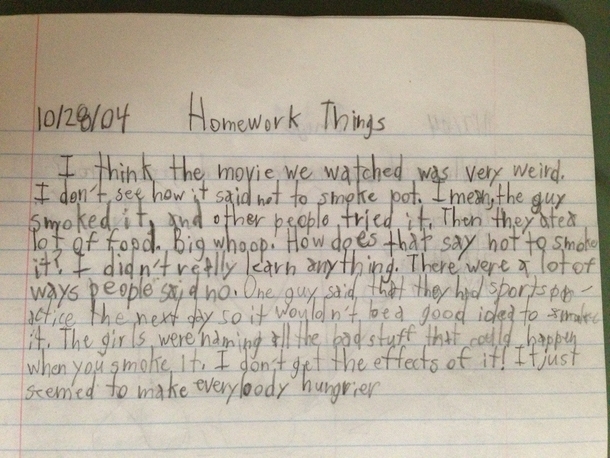 10/28/04 Homework Things
I think the movie we watched was very weird.
I don't see how it said not to smoke pot. I mean, the guy
smoked it, and other people tried it. Then they ate a
lot of food. Big whoop. How does that say not to smoke
it? I didn't really learn anything. There were a lot of
ways people said no. One guy said that they had sports pr-
actice the next day so it wouldn't be a good idea to smoke
it. The girls were naming all the bad stuff that could happen
when you smoke it. I don't get the effects of it! It just
seemed to make everybody hungrier